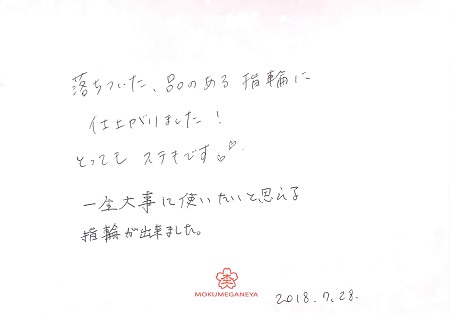 落ちついた、品のある指輪に
仕上がりました！
とってもステキです♡♡
一生大事に使いたいと思える
指輪が出来ました。
MOKUMEGANEYA
2018.7.28.